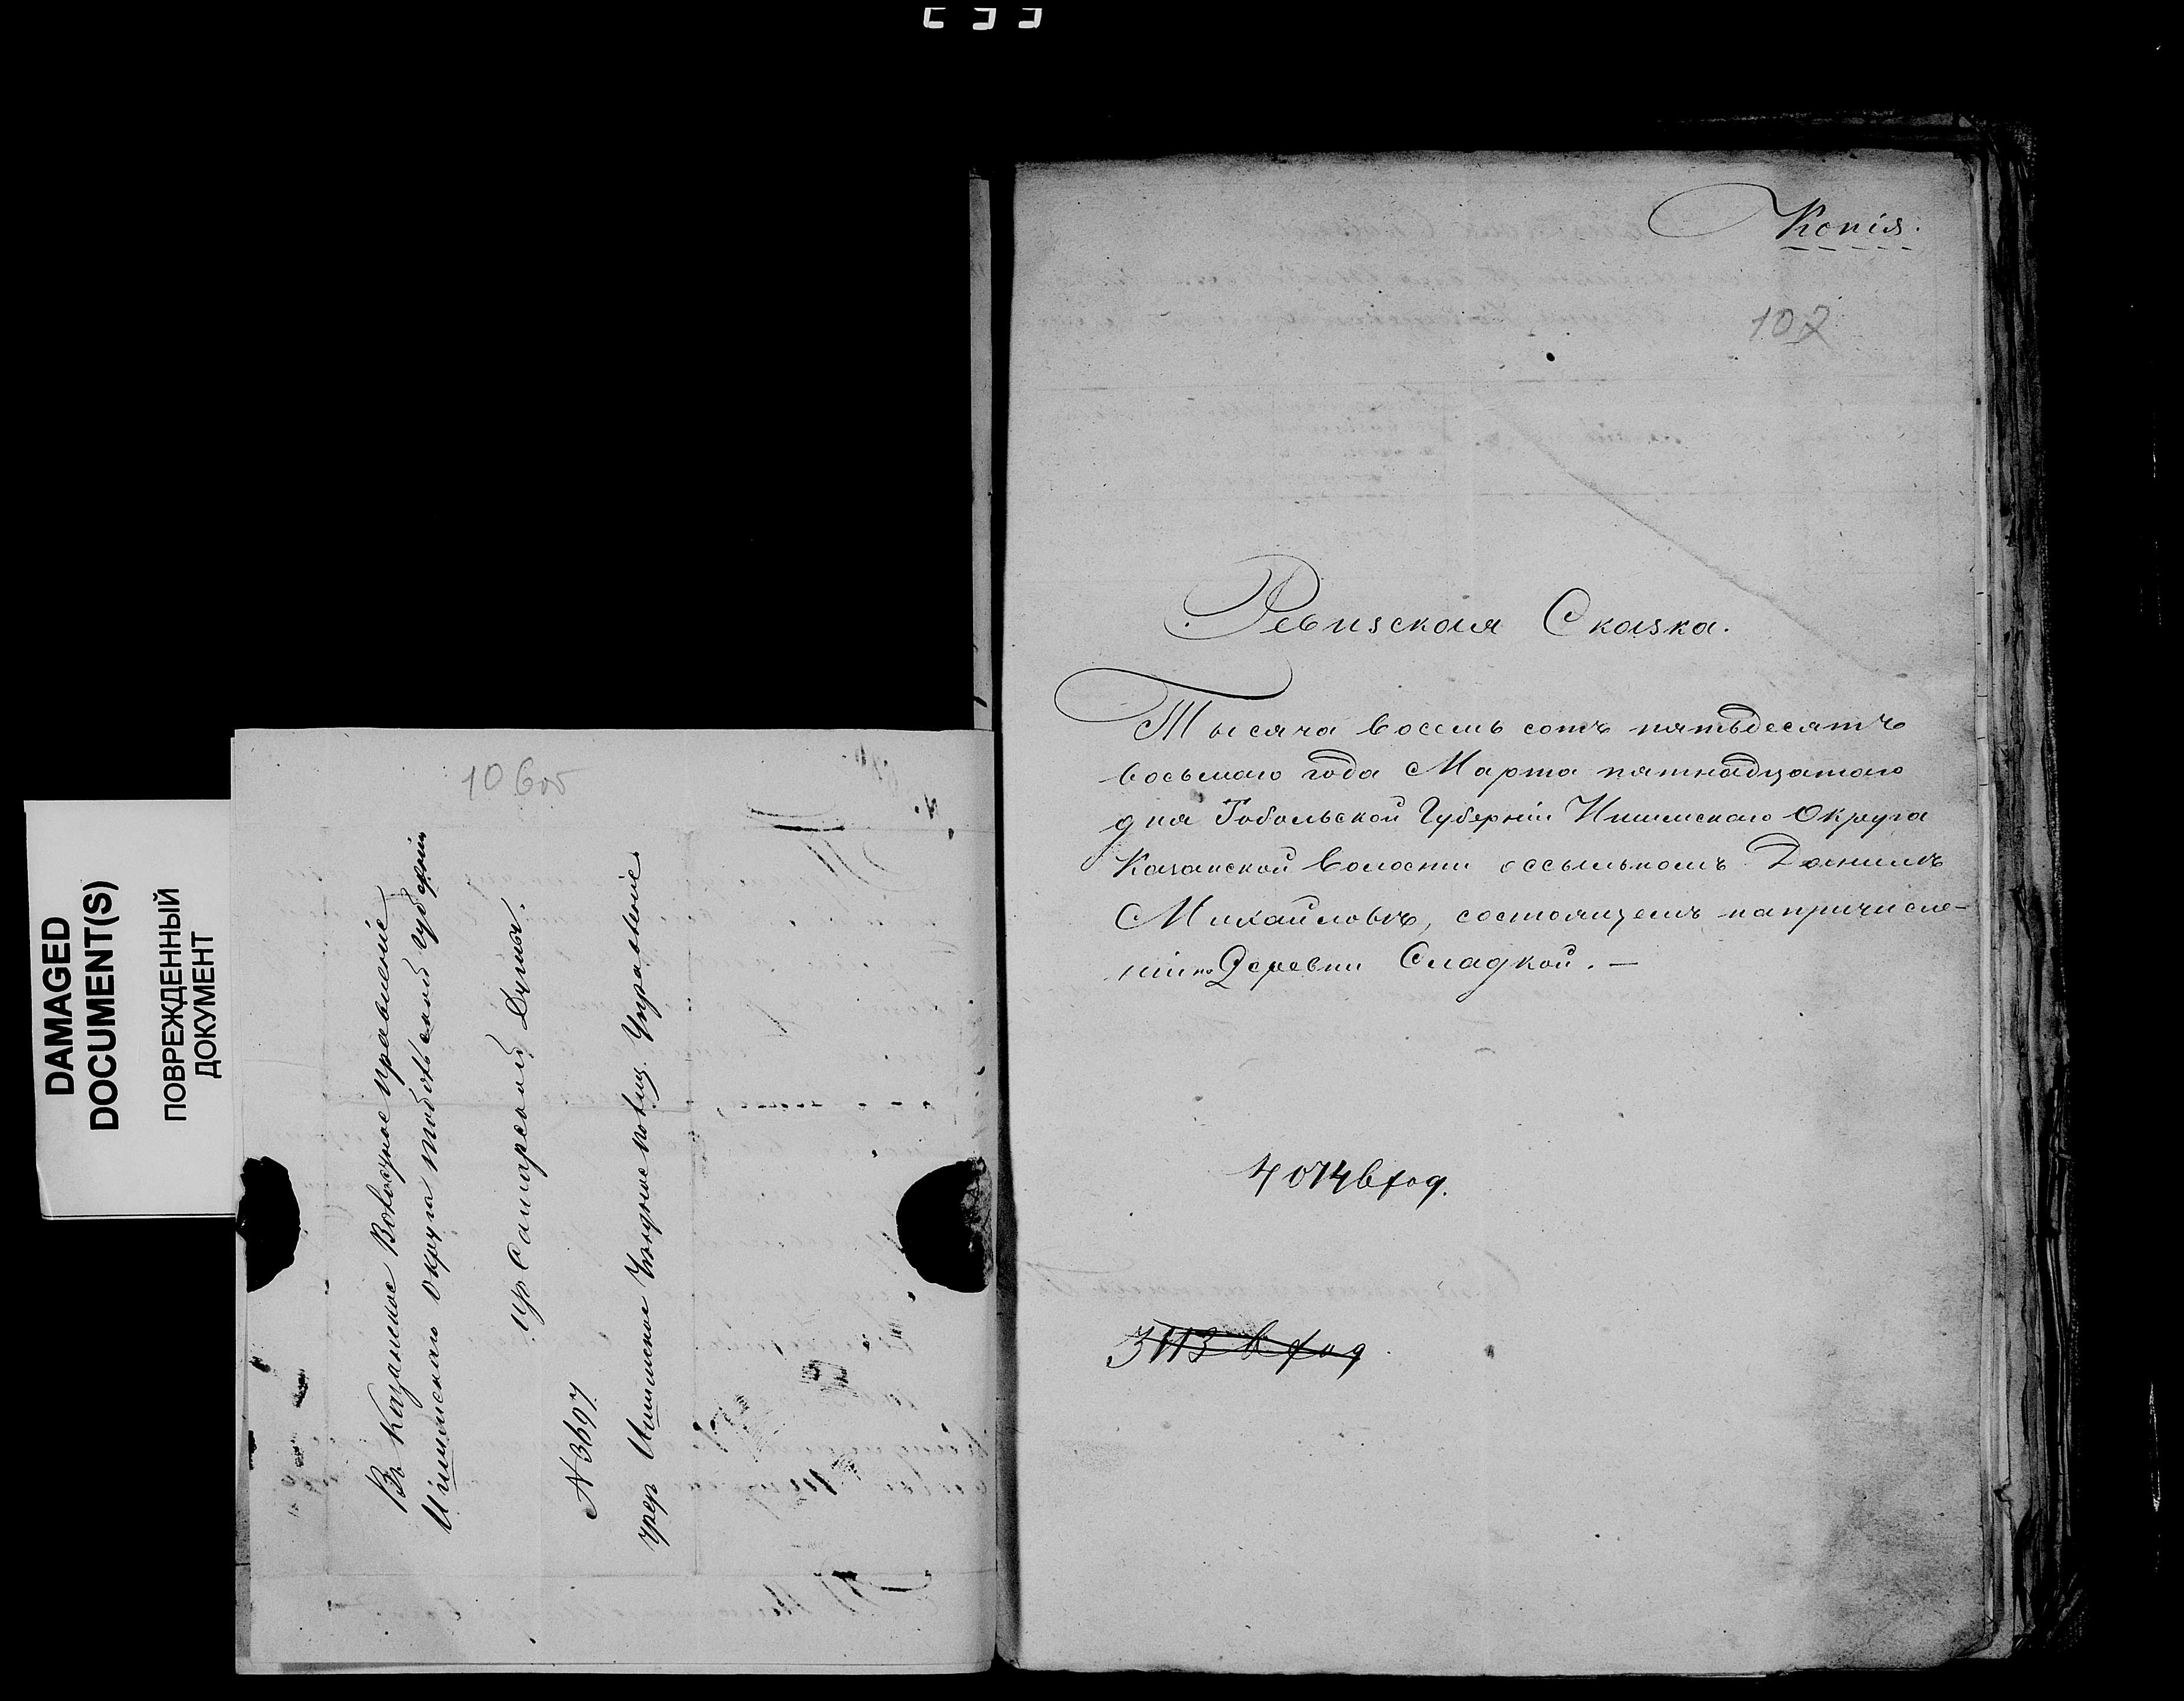 DAMAGED
DOCUMENT(S)
ПОВРЕЖДЕННЫЙ
ДОКУМЕНТ
10 боб
Въ Казанское Волостное правленіе
Ишимскаго округа тобольской губерніи
изъ Самарской Думы.
N 3697
чрез Ишимское Уездное полиц. Управленіе
Копія.
102
Ревизская Сказка.
Тысяча восемь сотъ пятьдесятъ
восьмаго года Марта пятнадцатаго
дня Тобольской Губерніи Ишимскаго Округа
Казанской волости о ссыльномъ Данилѣ
Михайловѣ, состоящемъ на причисле-
ніи по Деревни Сладкой. —
4074 вход.
3113 вход